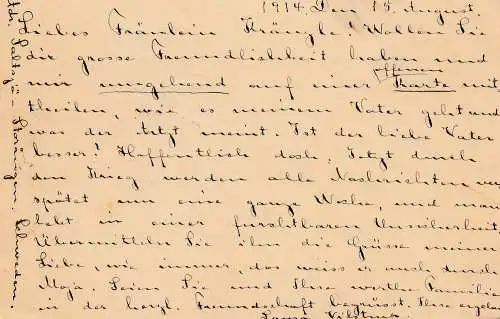 1914. Den 15. August.
Liebes Fräulein Kränzle! Wollen Sie
die grosse Freundlichkeit haben und
mir umgehend auf einer offenen Karte mit
theilen, wie es meinem Vater geht und
was der Arzt meint. Ist der liebe Vater
besser? Hoffentlich doch. Jetzt durch
den Krieg werden alle Nachrichten ver
spätet um eine ganze Woche, und man
lebt in einer furchtbaren Unsicherheit.
Übermitteln Sie allen die Grüsse meiner
Liebe, wie immer, das weiss er auch durch
Moja. Seien Sie und Ihre werthe Familie
in der herzl. Freundschaft begrüsst. Ihre ergebene
Laura
Adr. Saltsjö-Storängen. Schweden.